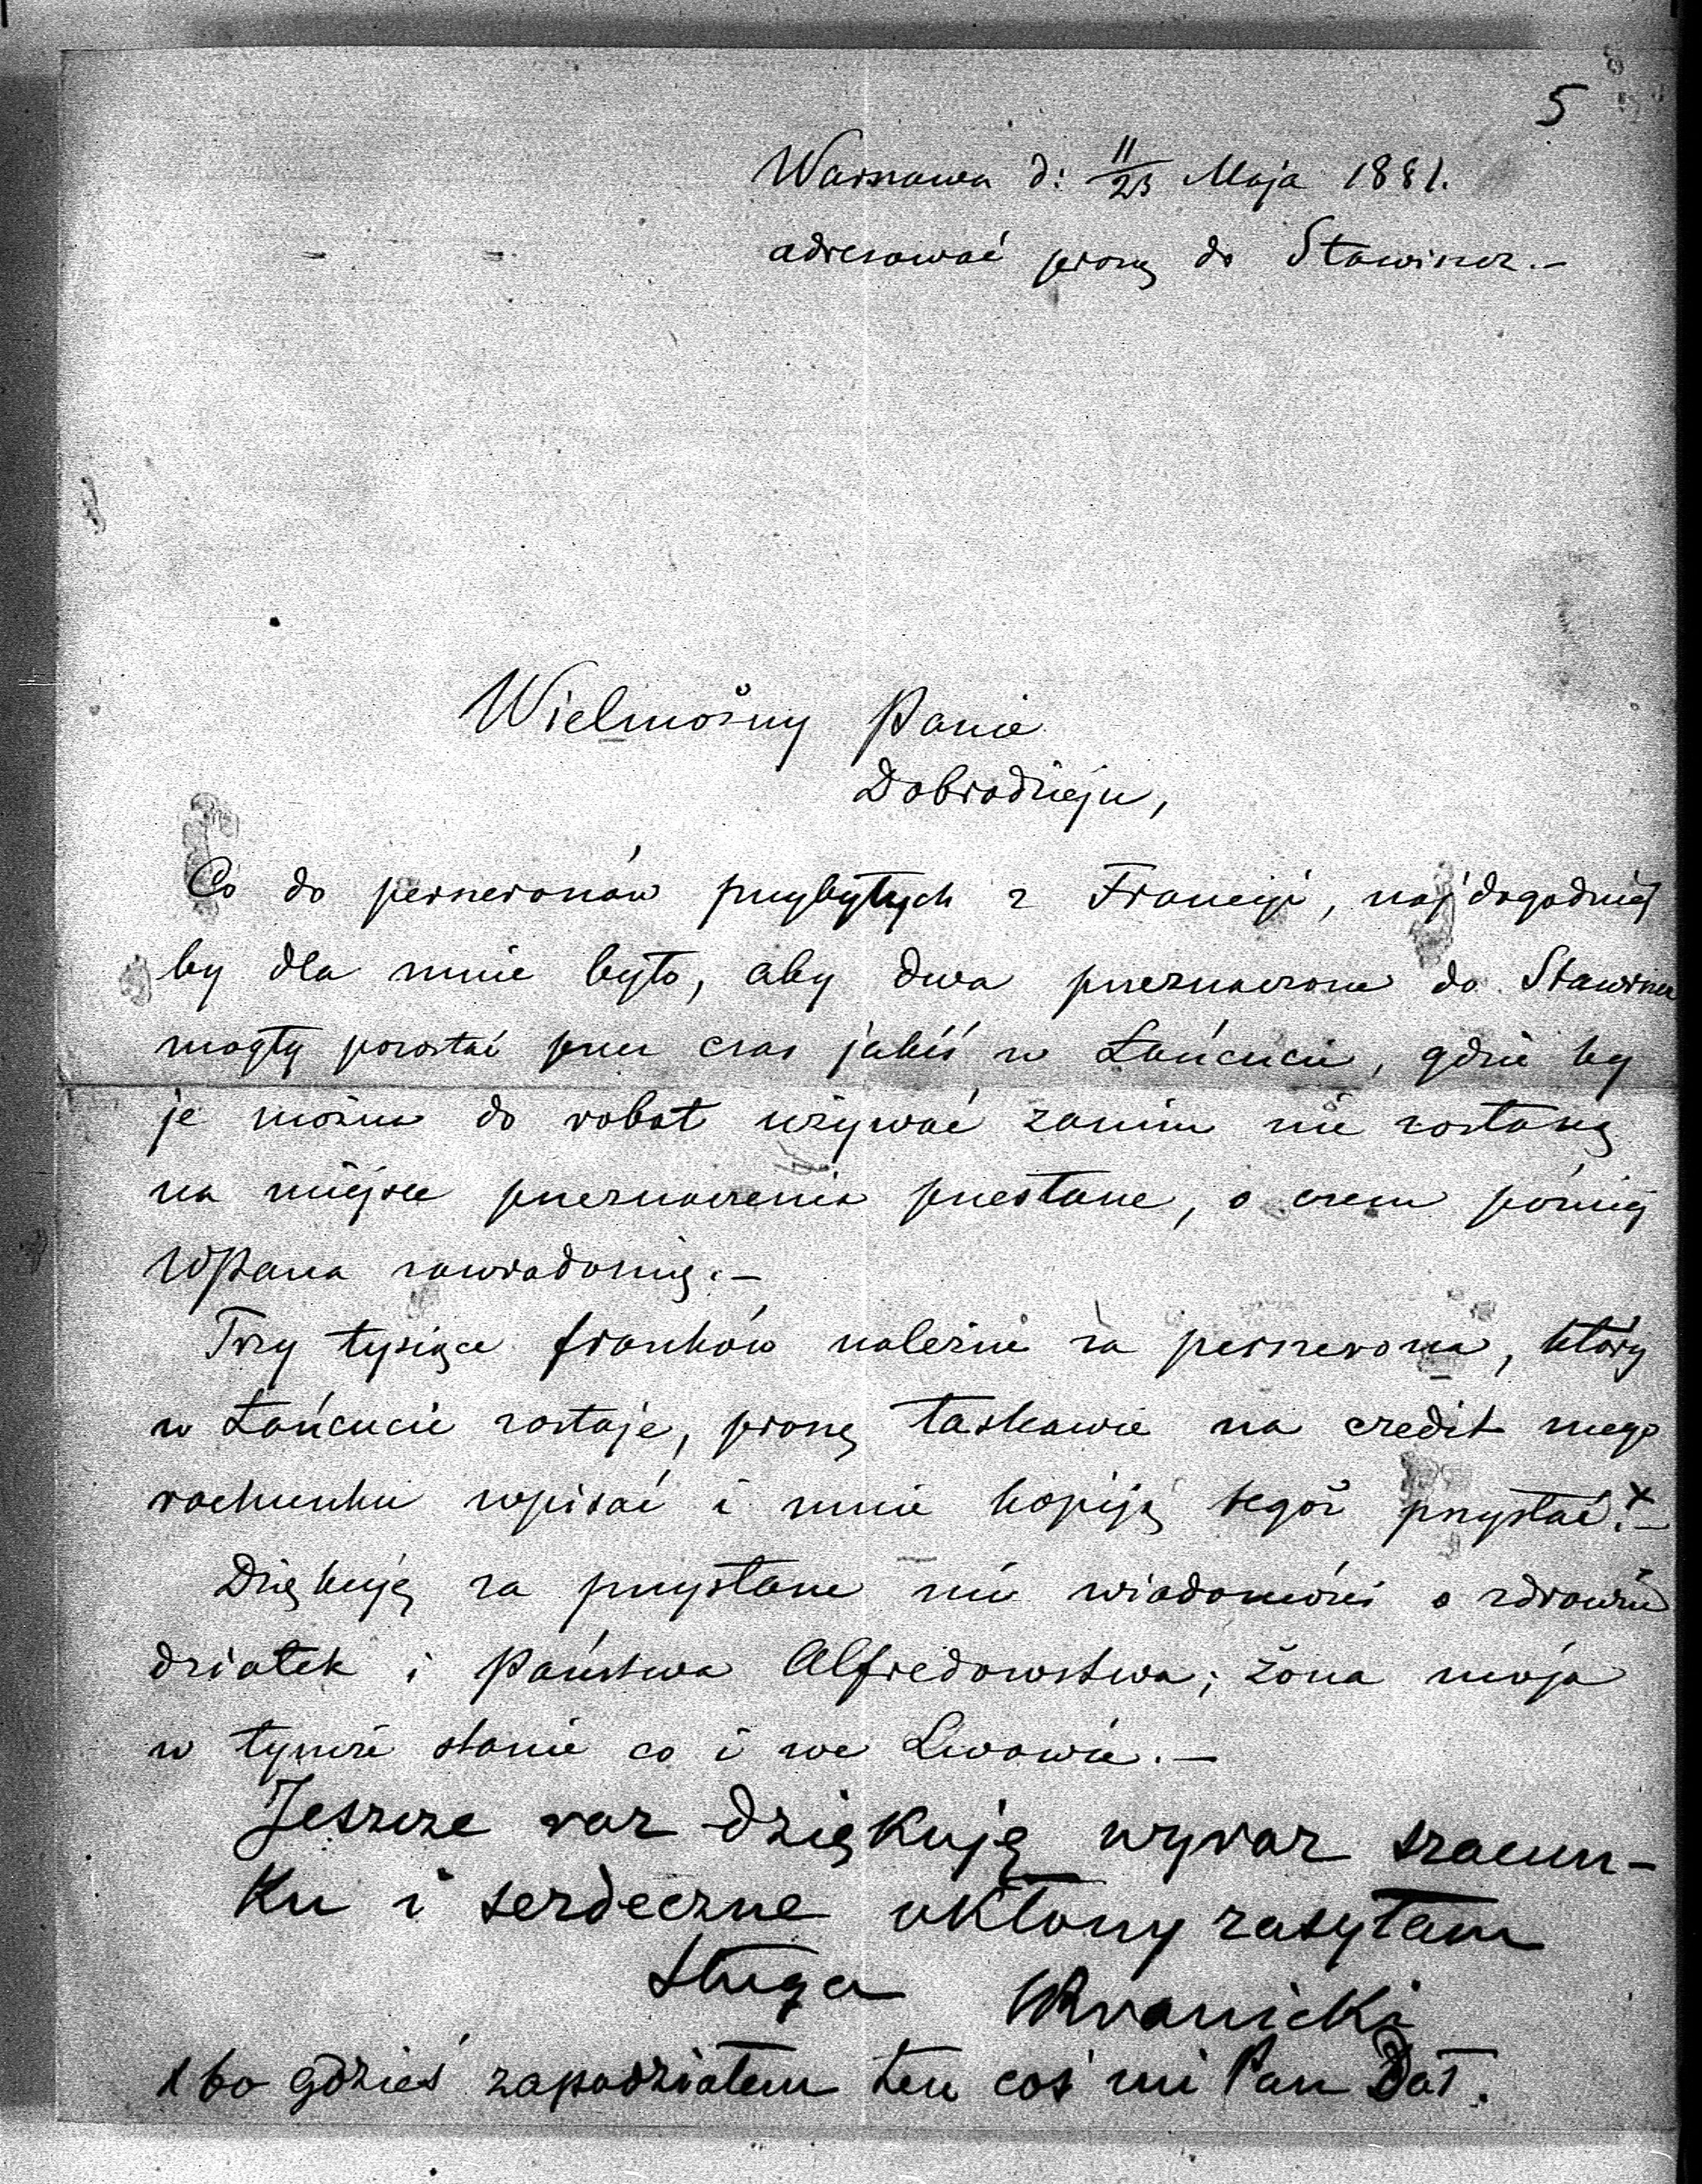 5
Warszawa d: 11/23 Maja 1881.
adresować proszę do Stawiszcz.—
Wielmożny Panie
Dobrodzieju,
Co do perszeronów przybyłych z Francyi, najdogodniej
by dla mnie było, aby dwa przeznaczone do Stawiszcz
mogły pozostać przez czas jakiś w Łańcucie, gdzie by
je można do robót używać zanim nie zostaną
na miejsce przeznaczenia przesłane, o czem późniéj
WPana zawiadomię.—
Trzy tysiące franków należne za perszerona, który
w Łańcucie zostaje, proszę łaskawie na credit mego
rachunku wpisać i mnie kopiją tegoż przysłać.x—
Dziękuję za przysłane mi wiadomości o zdrowiu
dziatek i Państwa Alfredowstwa; żona moja
w tymże stanie co i we Lwowie.—
Jeszcze raz dziękuję wyraz szacun-
ku i serdeczne ukłony zasyłam
sługa WBranicki
x bo gdzieś zapodziałem ten coś mi Pan Dał.